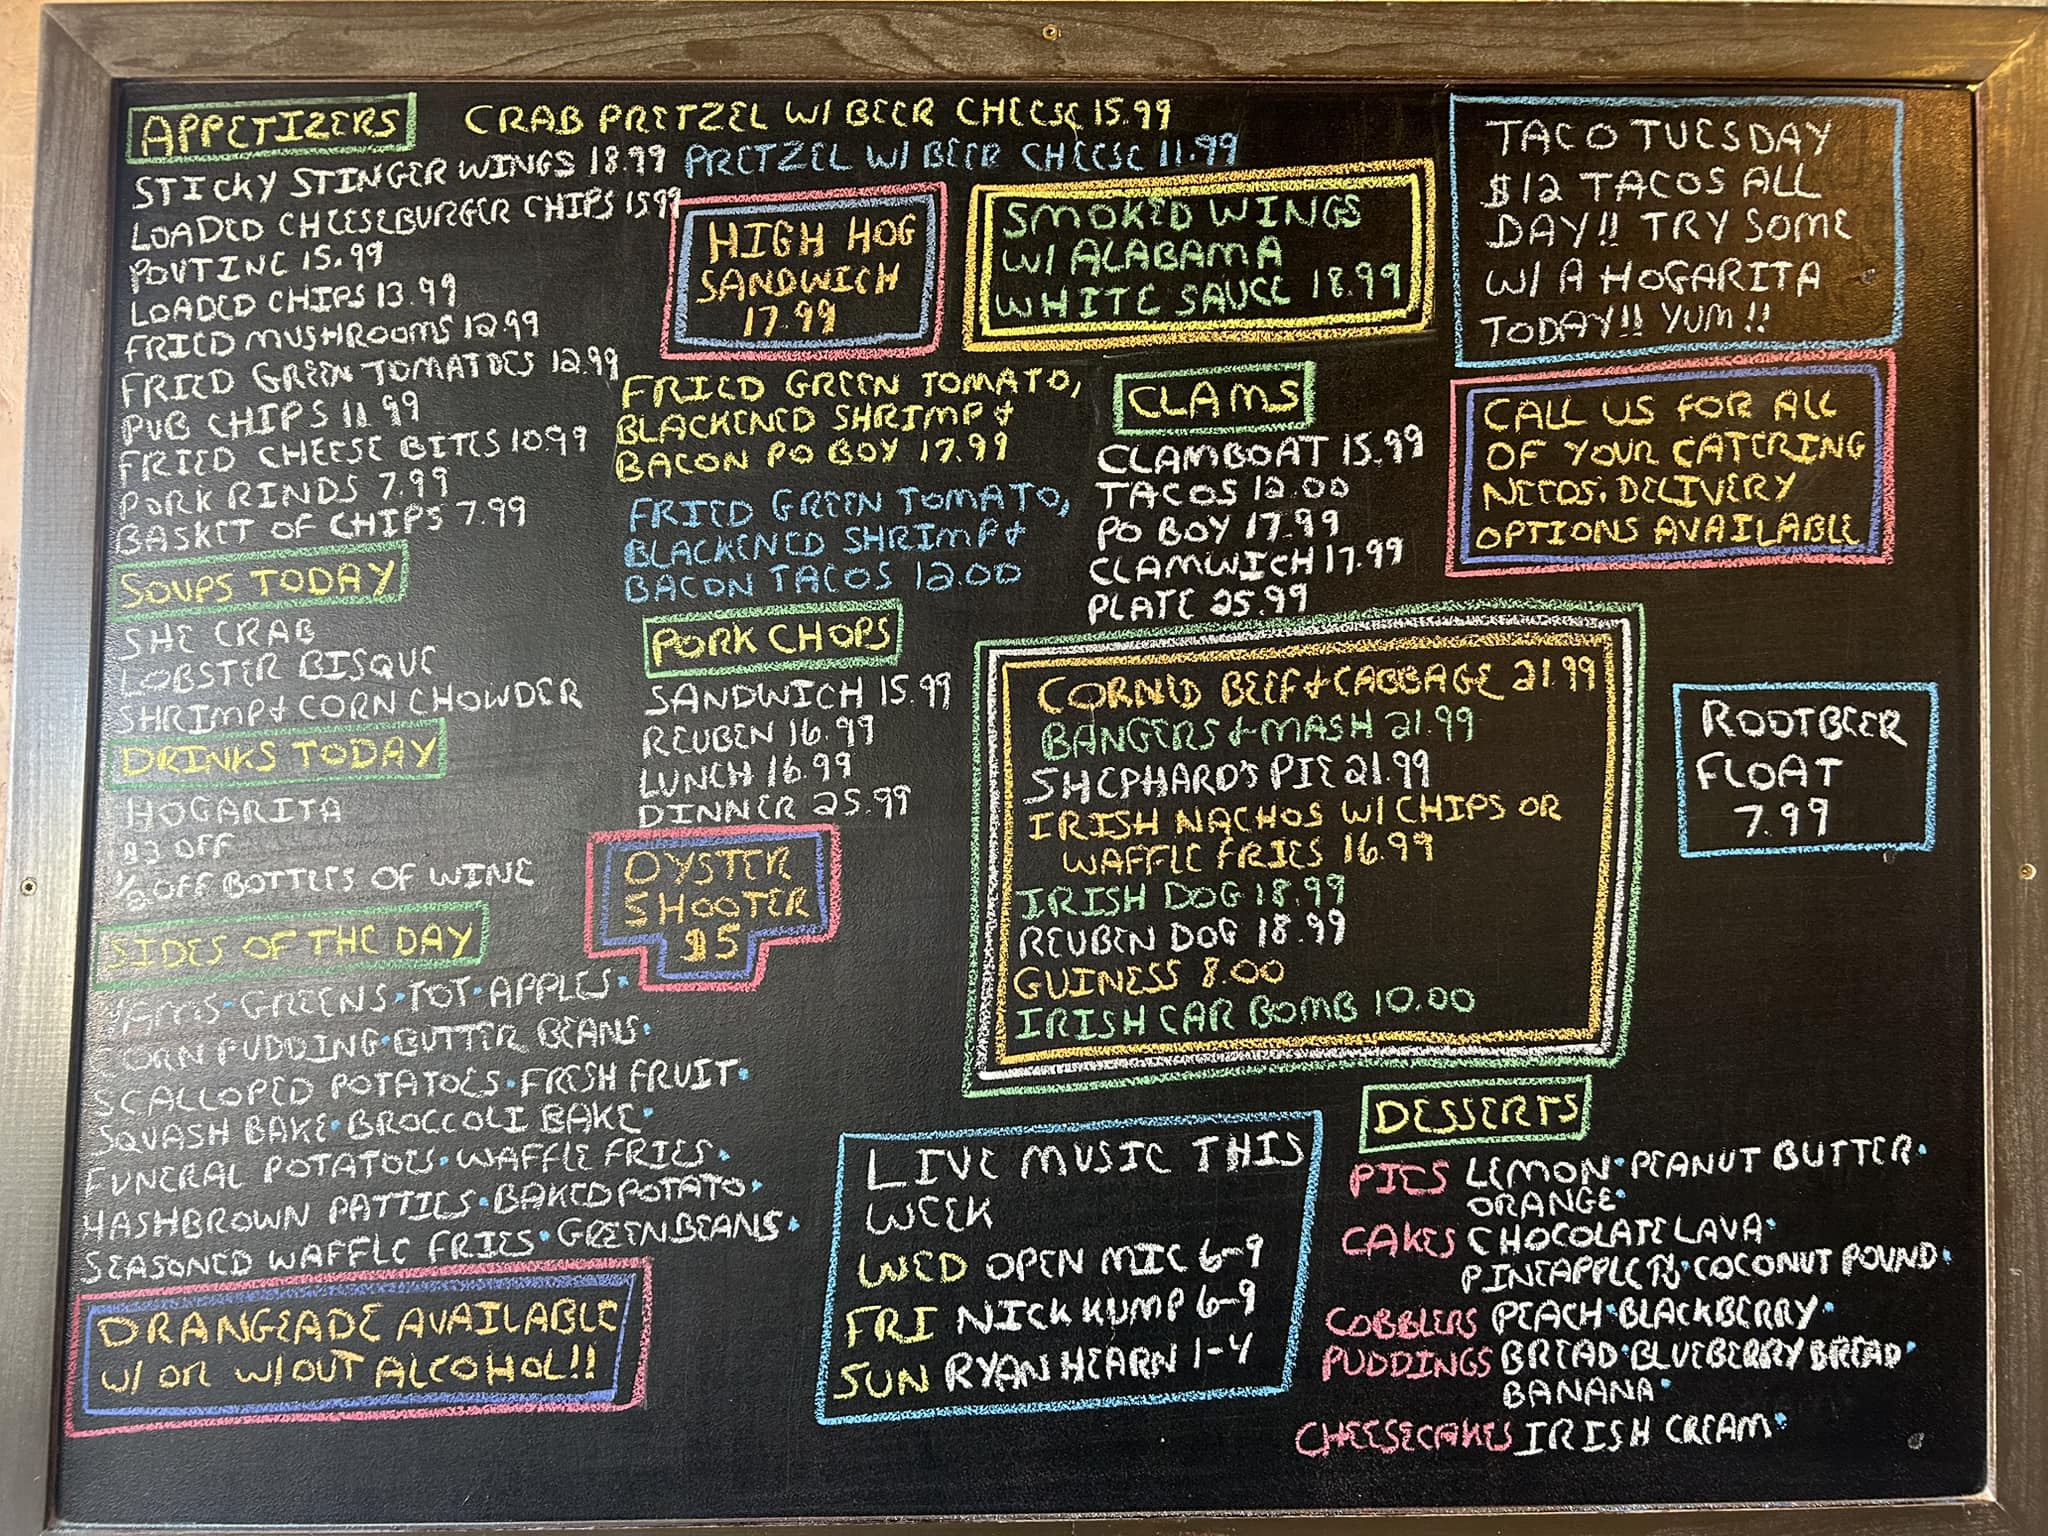 APPETIZERS
CRAB PRETZEL W/ BEER CHEESE 15.99
PRETZEL W/ BEER CHEESE 11.99
STICKY STINGER WINGS 18.99
LOADED CHEESEBURGER CHIPS 15.99
POUTINE 15.99
LOADED CHIPS 13.99
FRIED MUSHROOMS 12.99
FRIED GREEN TOMATOES 12.99
PUB CHIPS 11.99
FRIED CHEESE BITES 10.99
PORK RINDS 7.99
BASKET OF CHIPS 7.99
SOUPS TODAY
SHE CRAB
LOBSTER BISQUE
SHRIMP & CORN CHOWDER
DRINKS TODAY
HOGARITA
$3 OFF
1/2 OFF BOTTLES OF WINE
SIDES OF THE DAY
YAMS • GREENS • TOT • APPLES •
CORN PUDDING • BUTTER BEANS •
SCALLOPED POTATOES • FRESH FRUIT •
SQUASH BAKE • BROCCOLI BAKE •
FUNERAL POTATOES • WAFFLE FRIES •
HASHBROWN PATTIES • BAKED POTATO •
SEASONED WAFFLE FRIES • GREEN BEANS •
ORANGEADE AVAILABLE
W/ OR W/OUT ALCOHOL!!
HIGH HOG
SANDWICH
17.99
SMOKED WINGS
W/ ALABAMA
WHITE SAUCE 18.99
FRIED GREEN TOMATO,
BLACKENED SHRIMP &
BACON PO BOY 17.99
FRIED GREEN TOMATO,
BLACKENED SHRIMP &
BACON TACOS 12.00
PORK CHOPS
SANDWICH 15.99
REUBEN 16.99
LUNCH 16.99
DINNER 25.99
OYSTER
SHOOTER
$5
CLAMS
CLAMBOAT 15.99
TACOS 12.00
PO BOY 17.99
CLAMWICH 17.99
PLATE 25.99
CORNED BEEF & CABBAGE 21.99
BANGERS & MASH 21.99
SHEPHARD'S PIE 21.99
IRISH NACHOS W/ CHIPS OR
WAFFLE FRIES 16.99
IRISH DOG 18.99
REUBEN DOG 18.99
GUINESS 8.00
IRISH CAR BOMB 10.00
LIVE MUSIC THIS
WEEK
WED OPEN MIC 6-9
FRI NICK KUMP 6-9
SUN RYAN HEARN 1-4
TACO TUESDAY
$12 TACOS ALL
DAY!! TRY SOME
W/ A HOGARITA
TODAY!! YUM!!
CALL US FOR ALL
OF YOUR CATERING
NEEDS. DELIVERY
OPTIONS AVAILABLE
ROOTBEER
FLOAT
7.99
DESSERTS
PIES LEMON • PEANUT BUTTER •
ORANGE •
CAKES CHOCOLATE LAVA •
PINEAPPLE • COCONUT POUND •
COBBLERS PEACH • BLACKBERRY •
PUDDINGS BREAD • BLUEBERRY BREAD •
BANANA •
CHEESECAKES IRISH CREAM •